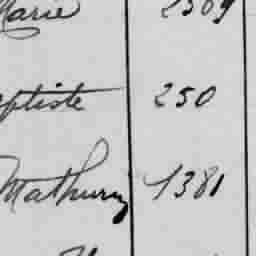 Marie 2309
eptiste 250
Mathurin 1381